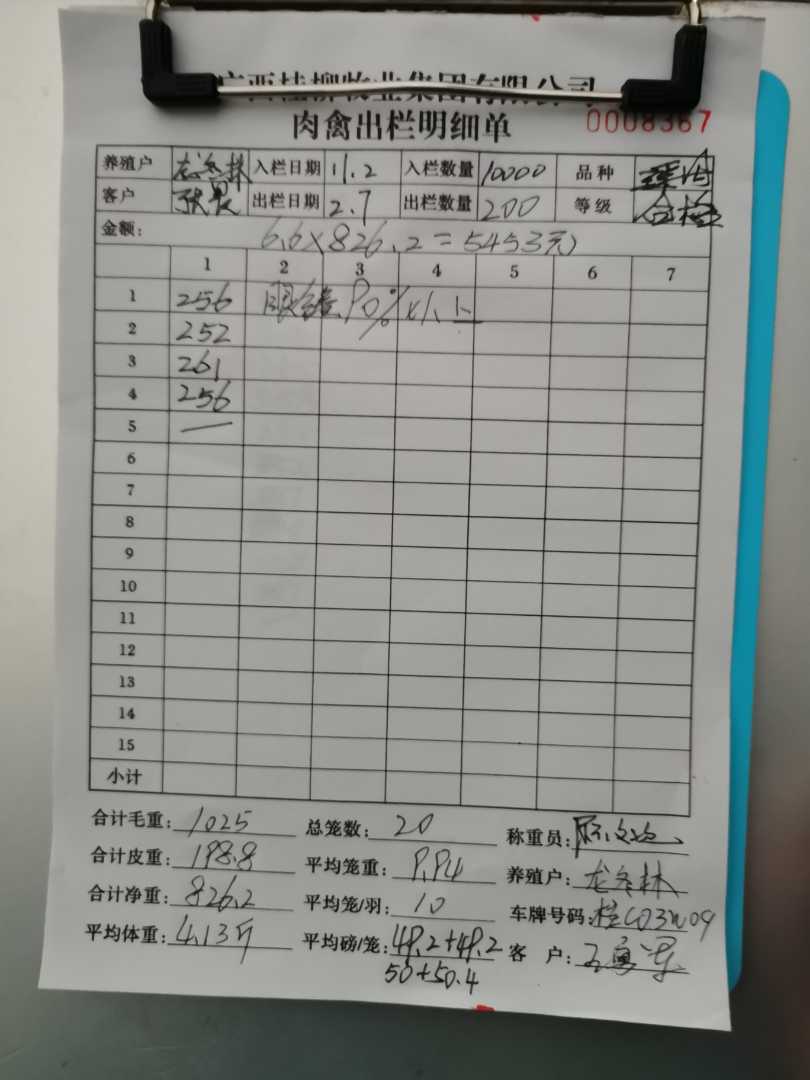 广西桂柳牧业集团有限公司
肉禽出栏明细单 0008367
养殖户 龙冬林 入栏日期 11.2 入栏数量 10000 品种
客户 出栏日期 2.7 出栏数量 200 等级 合格
金额: 6.6×826.2=5453元
1 2 3 4 5 6 7
1 256 90%以上
2 252
3 261
4 256
5 —
6
7
8
9
10
11
12
13
14
15
小计
合计毛重: 1025 总笼数: 20 称重员:
合计皮重: 198.8 平均笼重: 9.94 养殖户: 龙冬林
合计净重: 826.2 平均笼/羽: 10 车牌号码: 桂C03W09
平均体重: 4.13斤 平均磅/笼: 49.2+49.2 客 户:
50+50.4